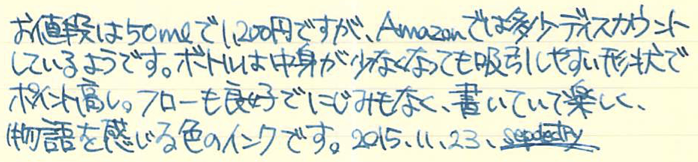 お値段は50mlで1,200円ですが、Amazonでは多少ディスカウント
しているようです。ボトルは中身が少なくなっても吸引しやすい形状で
ポイント高し。フローも良好でにじみもなく、書いていて楽しく、
物語を感じる色のインクです。2015.11.23、